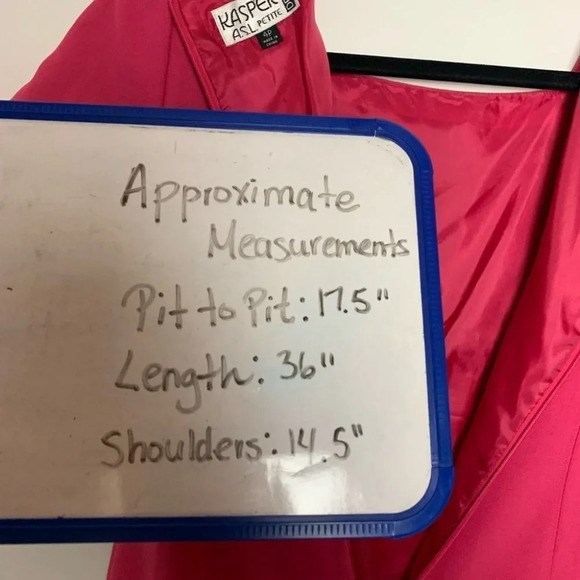 KASPER
A.S.L. PETITE
4P
MADE IN
CHINA
Approximate
Measurements
Pit to Pit: 17.5"
Length: 36"
Shoulders: 14.5"